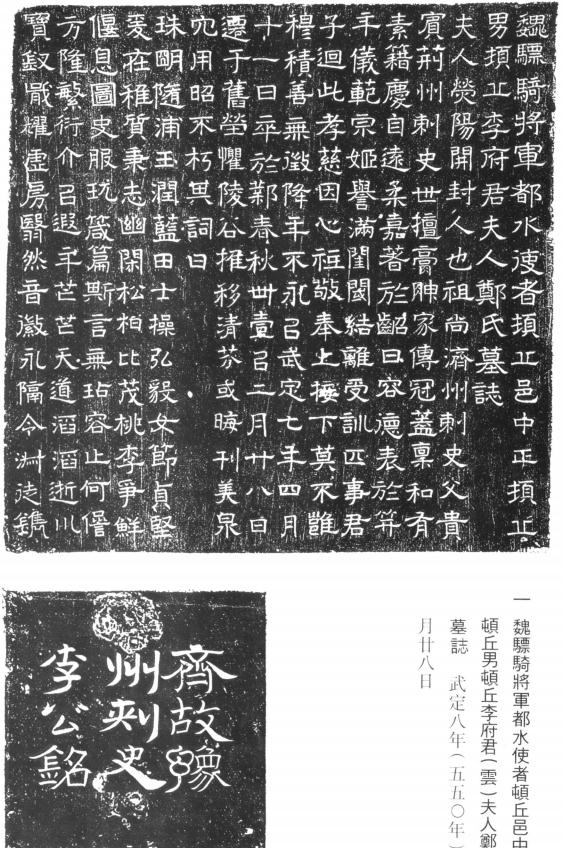 魏驃騎將軍都水使者頓丘邑中正頓丘
男頓丘李府君夫人鄭氏墓誌
夫人滎陽開封人也祖尚濟州刺史父貴
賓荊州刺史世擅膏腴家傳冠蓋稟和有
素籍慶自遠柔嘉著於齠日容德表於笄
年儀範宗姬譽滿閨閫結離受訓匹事君
子迴此孝慈因心祗敬奉上接下莫不雝
穆積善無徵降年不永以武定七年四月
十一日卒於鄴春秋卌壹以二月廿八日
遷于舊塋懼陵谷推移清芬或晦刊美泉
穴用昭不朽其詞曰
珠明隨浦玉潤藍田士操弘毅女節貞堅
爰在稚質秉志幽閑松柏比茂桃李爭鮮
偃息圖史服玩箴篇斯言無玷容止何僁
方隆繁衍介以遐年芒芒天道滔滔逝川
寶釵戢耀虛房翳然音徽永隔令淑徒鐫
齊故豫
州刺史
李公銘
一 魏驃騎將軍都水使者頓丘邑中
頓丘男頓丘李府君(雲)夫人鄭
墓誌 武定八年(五五〇年)
月廿八日